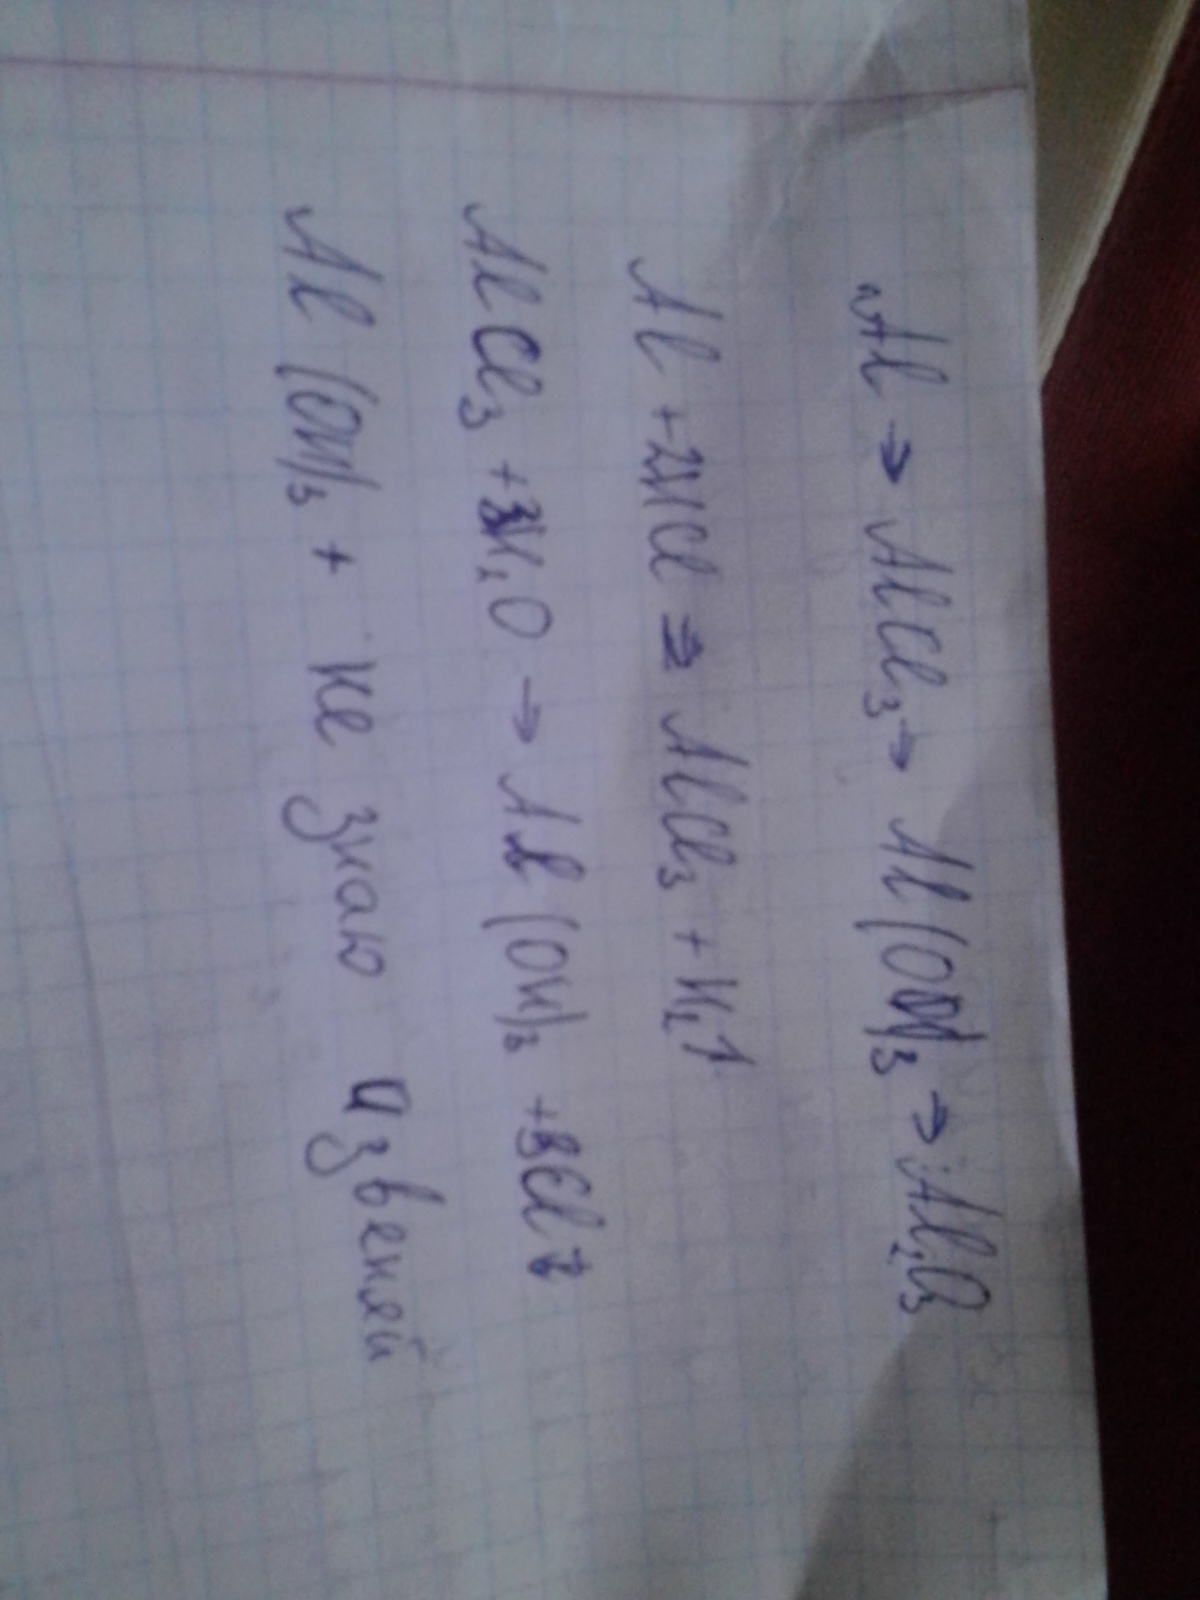 Al → AlCl₃ → Al(OH)₃ → Al₂O₃
Al + 2HCl → AlCl₃ + H₂↑
AlCl₃ + 3H₂O → Al(OH)₃ +
Al(OH)₃ + не знаю